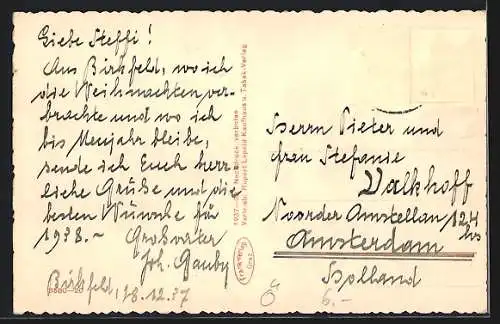 Liebe Steffi!
Aus Birkfeld, wo ich
die Weihnachten ver-
brachte und wo ich
bis Neujahr bleibe,
sende ich Euch herz-
liche Grüße und die
besten Wünsche für
1938.-
Großvater
Joh. Gauby
Birkfeld, 28.12.37
1937 Nachdruck verboten
Vertrieb: Rupert Lepold Kaufhaus u. Tabak-Verlag
Frank-Verlag
Graz
Herrn Pieter und
Frau Stefanie
Valkhoff
Noorder Amstellan 124
hs
Amsterdam
Holland
Ö
6.-